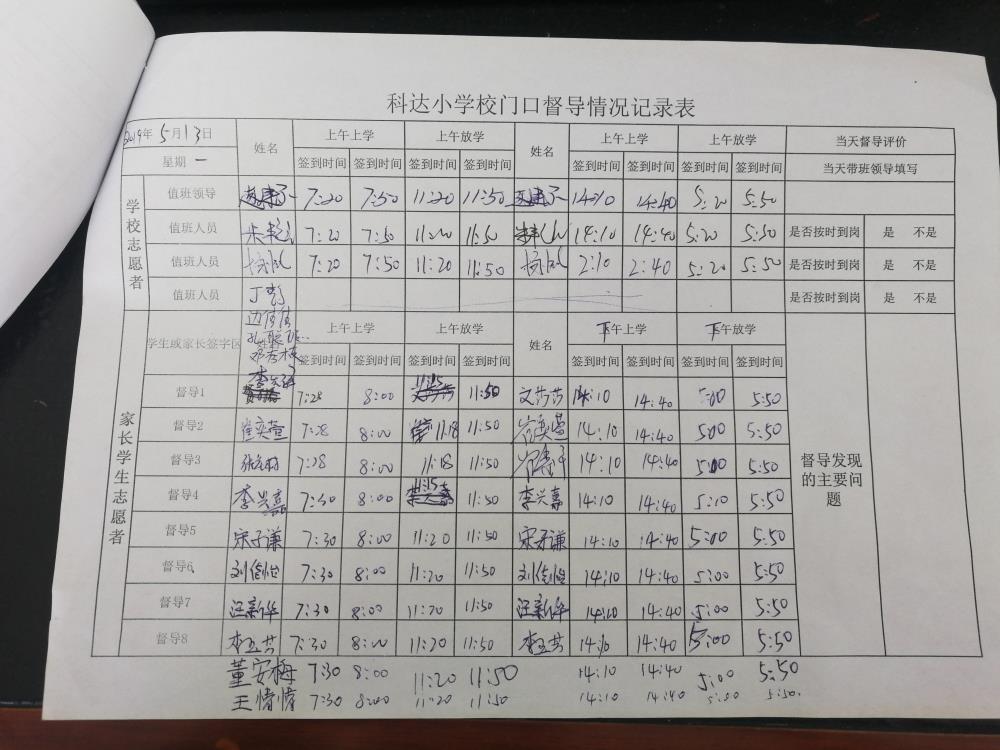 科达小学校门口督导情况记录表
2019年 5月13日 姓名 上午上学 上午放学 姓名 上午上学 上午放学 当天督导评价
星期 一 签到时间 签到时间 签到时间 签到时间 签到时间 签到时间 签到时间 签到时间 当天带班领导填写
学校志愿者
值班领导 7:20 7:50 11:20 11:50 14:10 14:40 5:20 5:50
值班人员 7:20 7:50 11:20 11:50 14:10 14:40 5:20 5:50 是否按时到岗 是 不是
值班人员 7:20 7:50 11:20 11:50 2:10 2:40 5:20 5:50 是否按时到岗 是 不是
值班人员 丁 是否按时到岗 是 不是
家长学生志愿者
学生或家长签字区 上午上学 上午放学 姓名 下午上学 下午放学
签到时间 签到时间 签到时间 签到时间 签到时间 签到时间 签到时间 签到时间
督导1 7:28 8:00 11:15 11:50 文莎莎 14:10 14:40 5:00 5:50
督导2 崔奕萱 7:28 8:00 11:18 11:50 崔奕萱 14:10 14:40 5:00 5:50
督导3 7:28 8:00 11:18 11:50 14:10 14:40 5:00 5:50
督导4 李兴嘉 7:30 8:00 11:15 11:50 李兴嘉 14:10 14:40 5:10 5:50
督导5 宋子谦 7:30 8:00 11:20 11:50 宋子谦 14:10 14:40 5:00 5:50
督导6 7:30 8:00 11:20 11:50 14:10 14:40 5:00 5:50
督导7 汪新华 7:30 8:00 11:20 11:50 汪新华 14:10 14:40 5:00 5:50
督导8 7:30 8:00 11:20 11:50 14:10 14:40 5:00 5:50
督导发现的主要问题
董安梅 7:30 8:00 11:20 11:50 14:10 14:40 5:00 5:50
王情情 7:30 8:00 11:20 11:50 14:10 14:40 5:50.